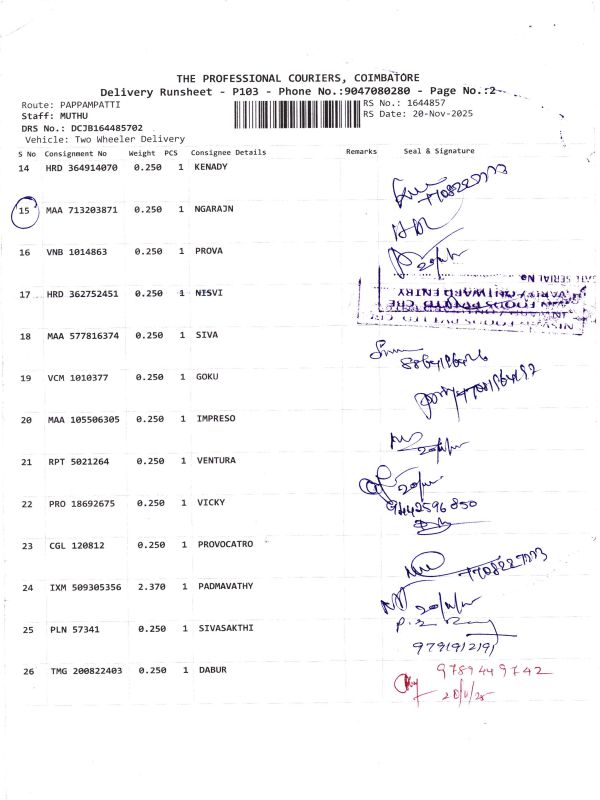 THE PROFESSIONAL COURIERS, COIMBATORE
Delivery Runsheet - P103 - Phone No.:9047080280 - Page No.:2
Route: PAPPAMPATTI
RS No.: 1644857
Staff: MUTHU
RS Date: 20-Nov-2025
DRS No.: DCJB164485702
Vehicle: Two Wheeler Delivery
S No Consignment No Weight PCS Consignee Details Remarks Seal & Signature
14 HRD 364914070 0.250 1 KENADY
7708227773
15 MAA 713203871 0.250 1 NGARAJN
16 VNB 1014863 0.250 1 PROVA
17 HRD 362752451 0.250 1 NISVI
18 MAA 577816374 0.250 1 SIVA
19 VCM 1010377 0.250 1 GOKU
20 MAA 105506305 0.250 1 IMPRESO
21 RPT 5021264 0.250 1 VENTURA
22 PRO 18692675 0.250 1 VICKY
9442596850
23 CGL 120812 0.250 1 PROVOCATRO
24 IXM 509305356 2.370 1 PADMAVATHY
25 PLN 57341 0.250 1 SIVASAKTHI
9791912191
26 TMG 200822403 0.250 1 DABUR
9789449742
20/11/25